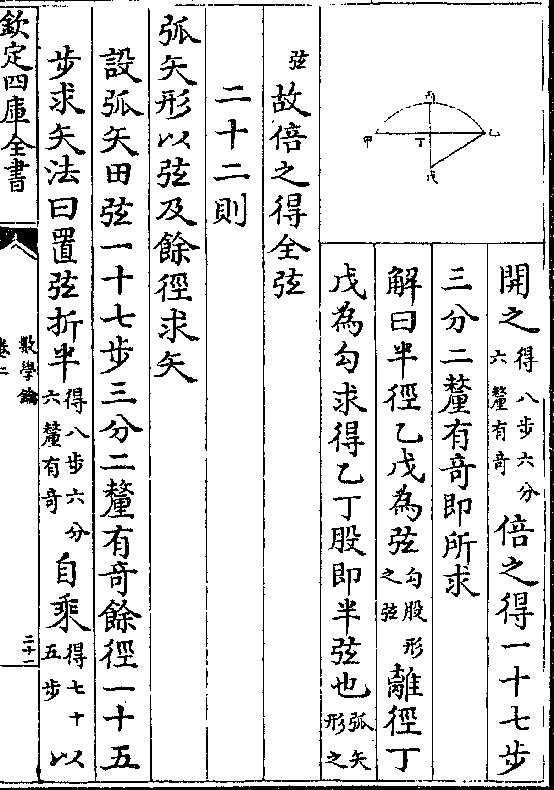 開之得八步六分六釐有奇倍之得一十七步
三分二釐有奇即所求
解曰半徑乙戊為弦勾股形之弦離徑丁
戊為勾求得乙丁股即半弦也弧矢形之
弦故倍之得全弦
二十二則
弧矢形以弦及餘徑求矢
設弧矢田弦一十七步三分二釐有奇餘徑一十五
步求矢法曰置弦折半得八步六分六釐有奇自乘得七十五步以
欽定四庫全書
數學鑰
卷二
二十一
丙
甲
丁
乙
戊